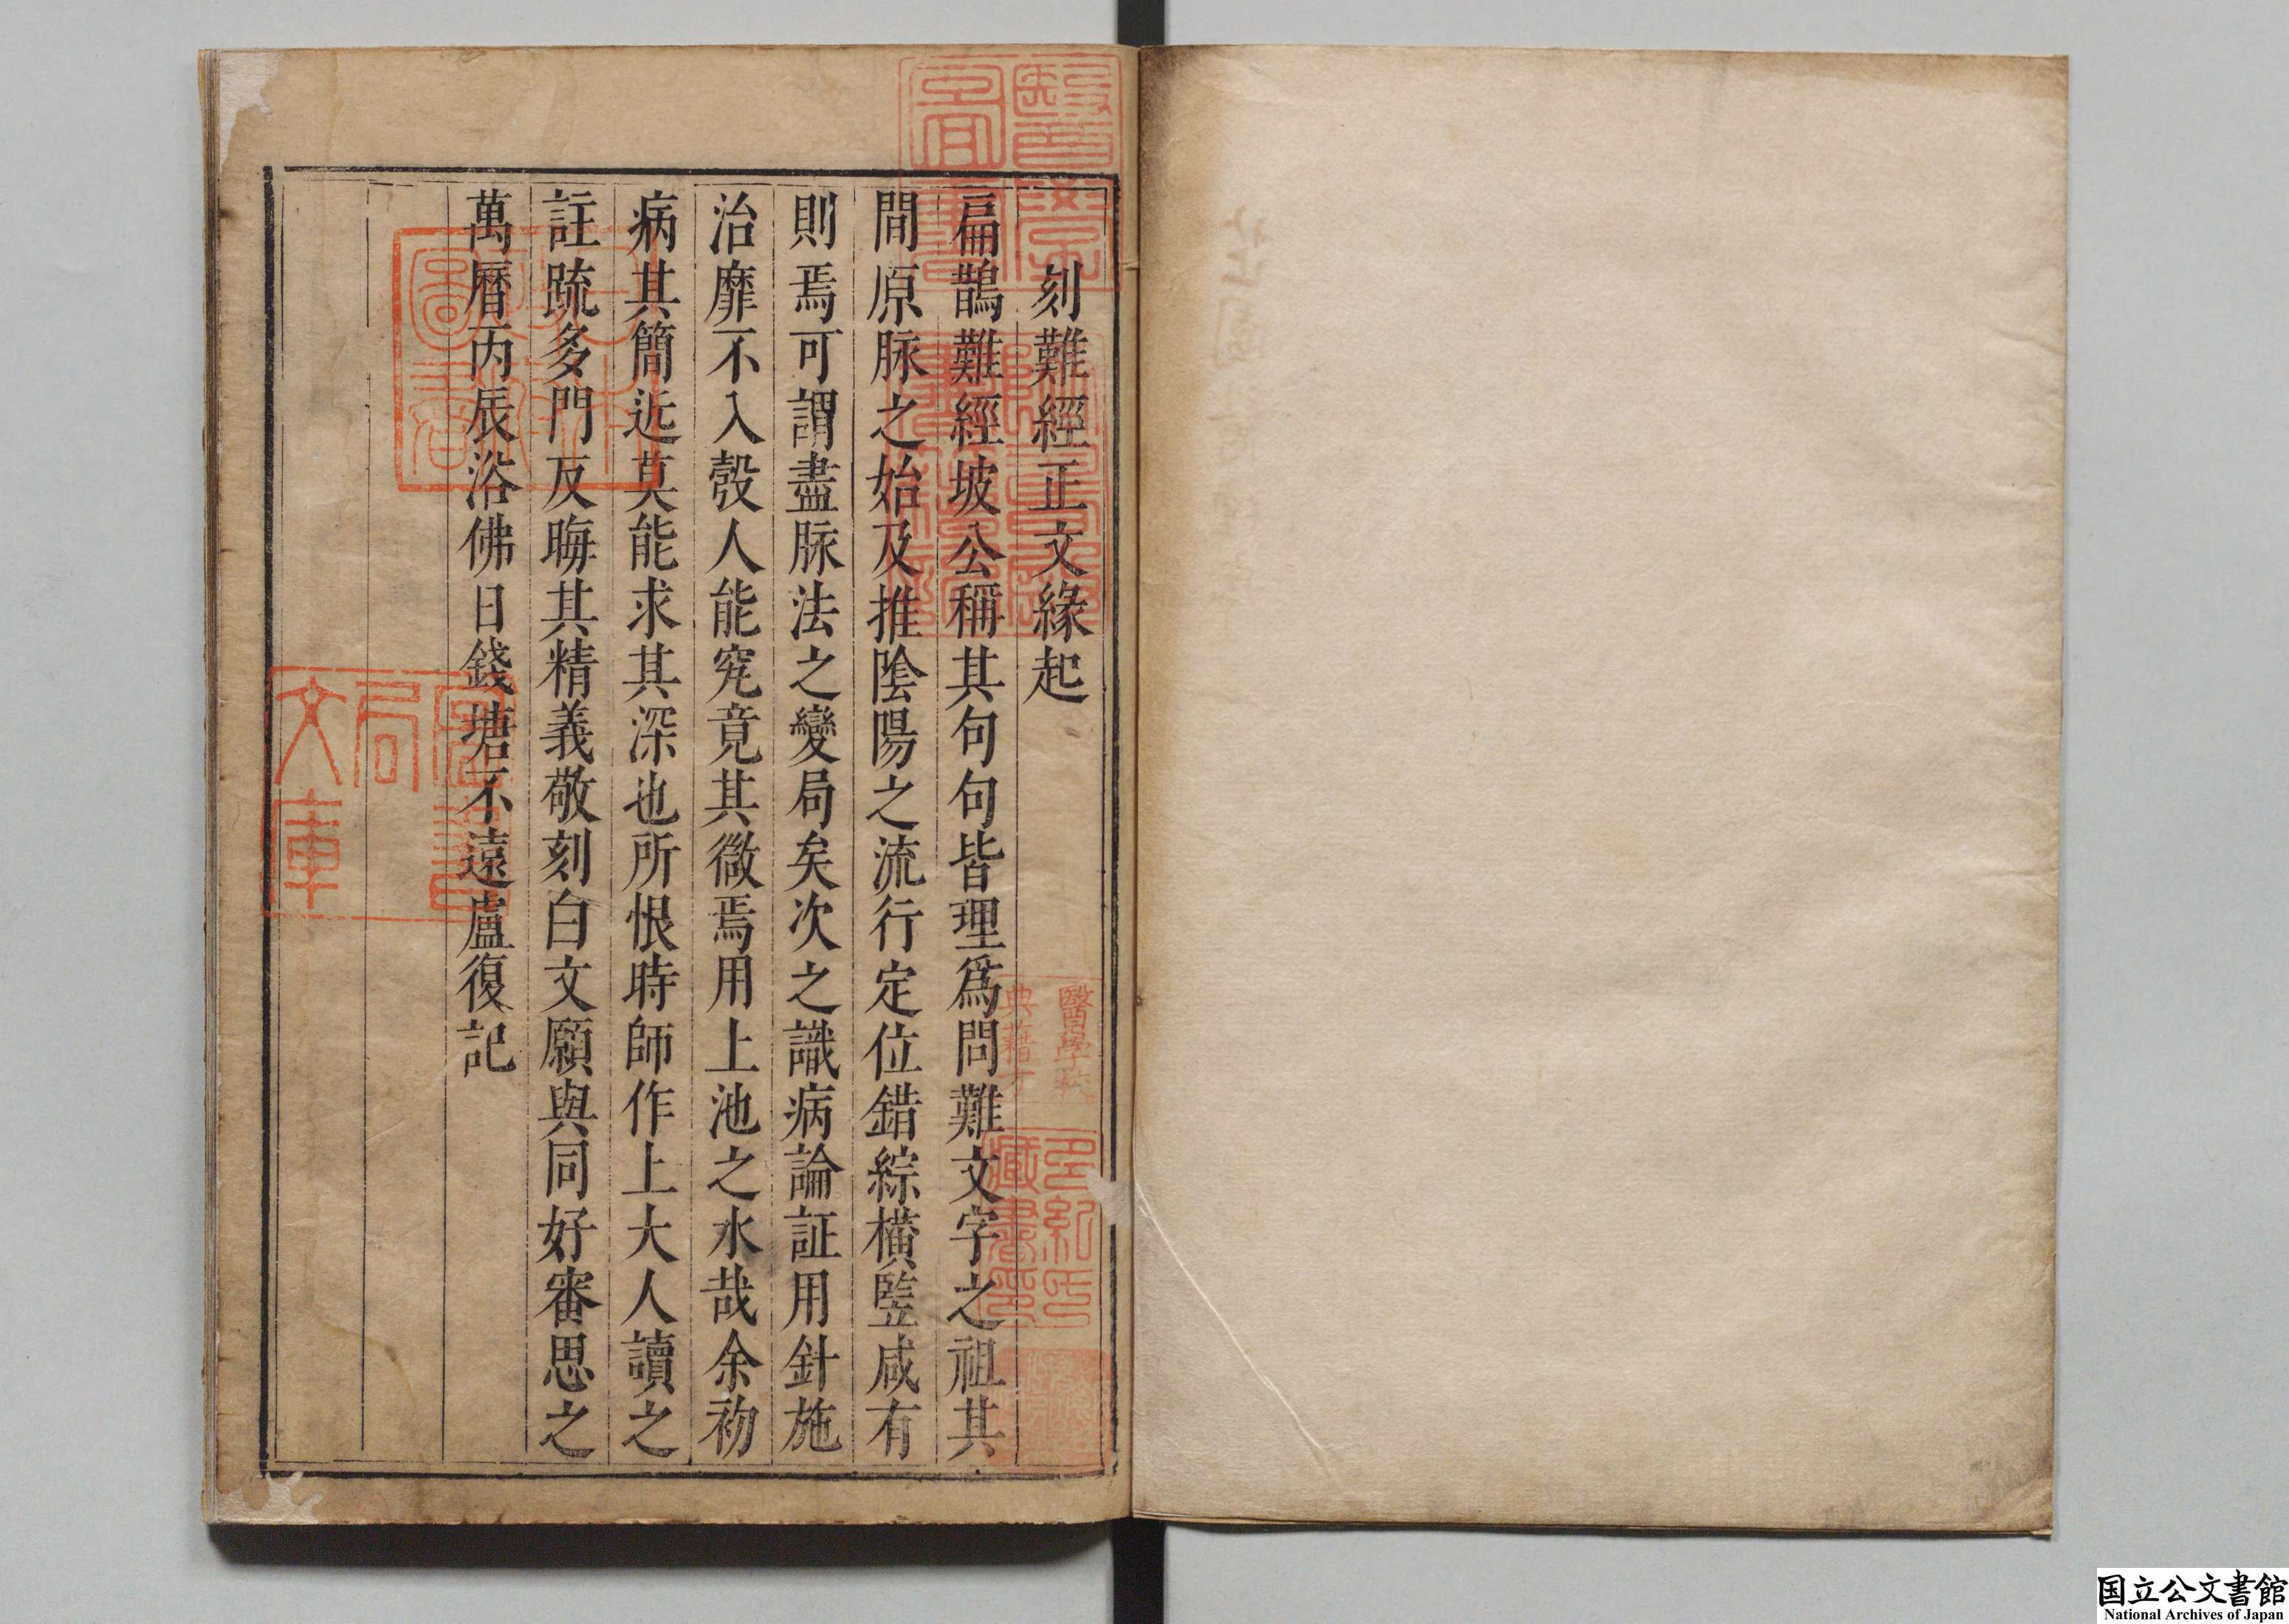 刻難經正文緣起
扁鵲難經坡公稱其句句皆理爲問難文字之祖其
間原脉之始及推陰陽之流行定位錯綜橫竪咸有
則焉可謂盡脉法之變局矣次之識病論証用針施
治靡不入彀人能究竟其微焉用上池之水哉余初
病其簡近莫能求其深也所恨時師作上大人讀之
註疏多門反晦其精義敬刻白文願與同好審思之
萬曆丙辰浴佛日錢塘不遠盧復記
醫學校
典籍方
文庫
局
圖書
藏書
国立公文書館
National Archives of Japan